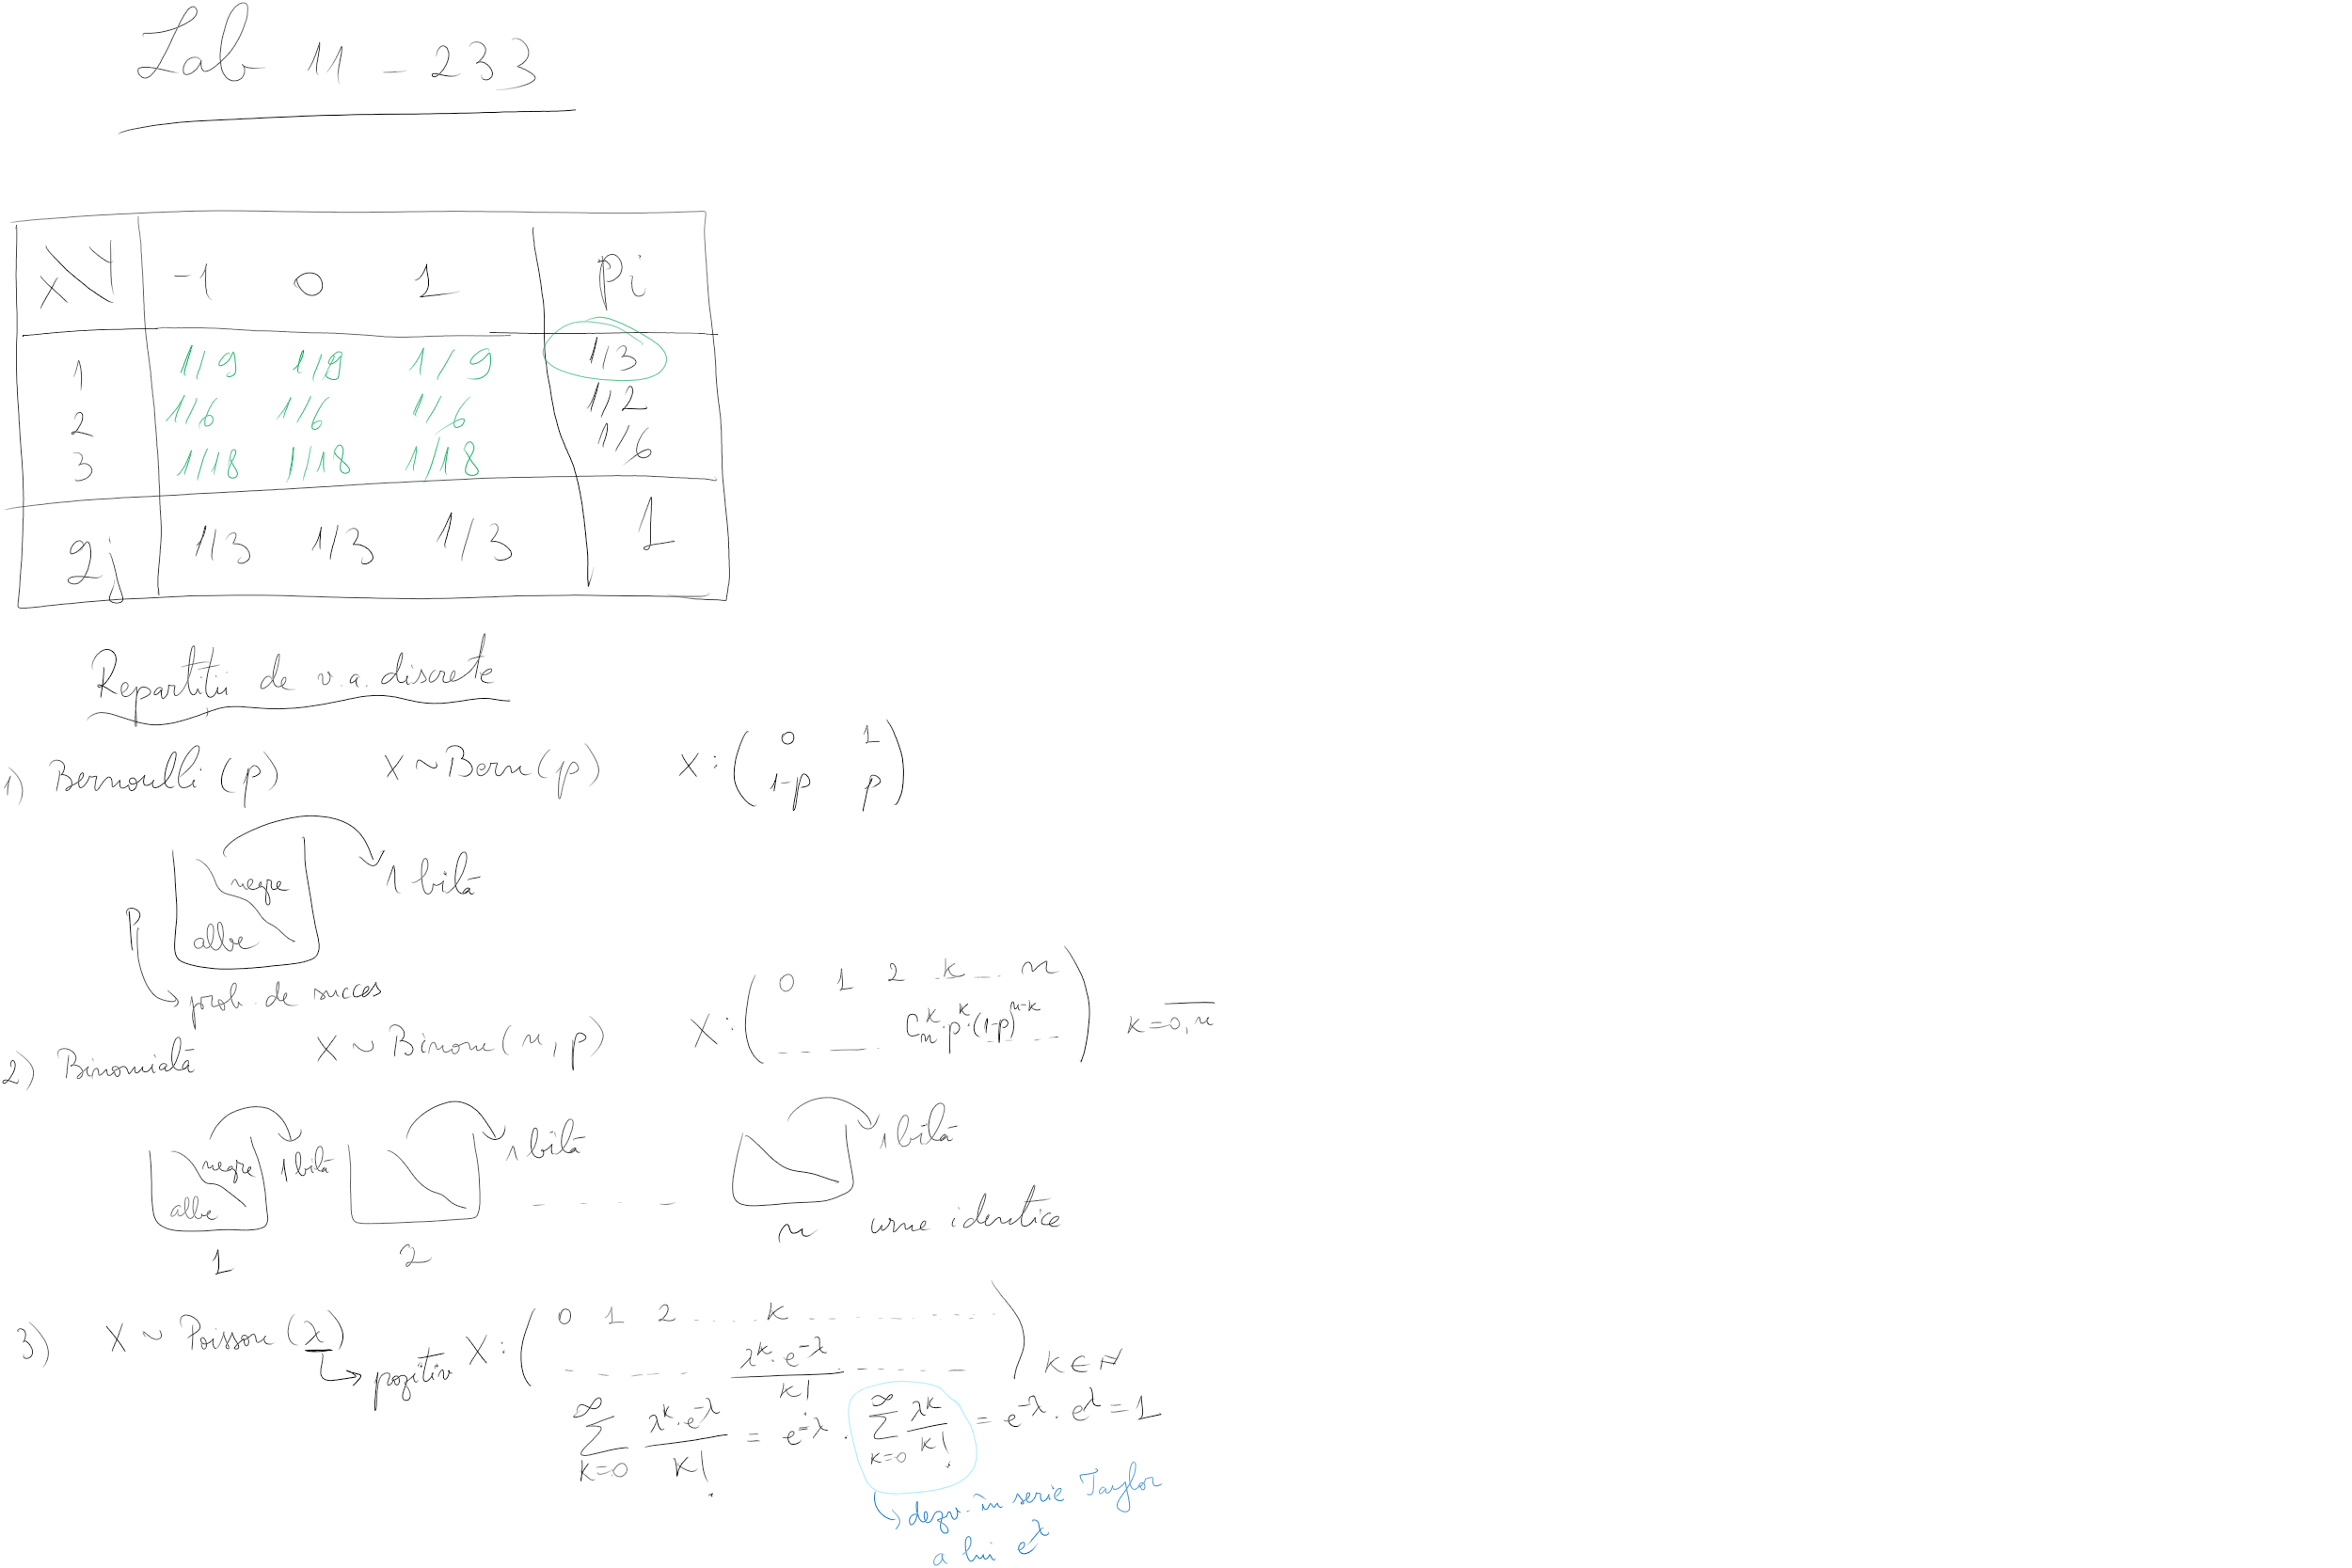 Lab 11 - 233
X\Y -1 0 1 pi
1 1/9 1/9 1/9 1/3
2 1/6 1/6 1/6 1/2
3 1/18 1/18 1/18 1/6
qj 1/3 1/3 1/3 1
Repartitii de v.a. discrete
1) Bernoulli (p) X ~ Bern(p) X : ( 0 1
1-p p )
negre
albe
1 bilă
p
prob. de succes
2) Binomială X ~ Binom(n, p) X : ( 0 1 2 ... k ... n
... C_n^k · p^k · (1-p)^{n-k} ... ) k = \overline{0, n}
negre albe 1 bilă 1 bilă - - - - 1 bilă
1 2 n urne identice
3) X ~ Poisson (λ) X : ( 0 1 2 ... k ...
... \frac{λ^k · e^{-λ}}{k!} ... ) k ∈ ℕ
pozitiv
\sum_{k=0}^{∞} \frac{λ^k · e^{-λ}}{k!} = e^{-λ} · \sum_{k=0}^{∞} \frac{λ^k}{k!} = e^{-λ} · e^{λ} = 1
dezv. în serie Taylor
a lui e^λ